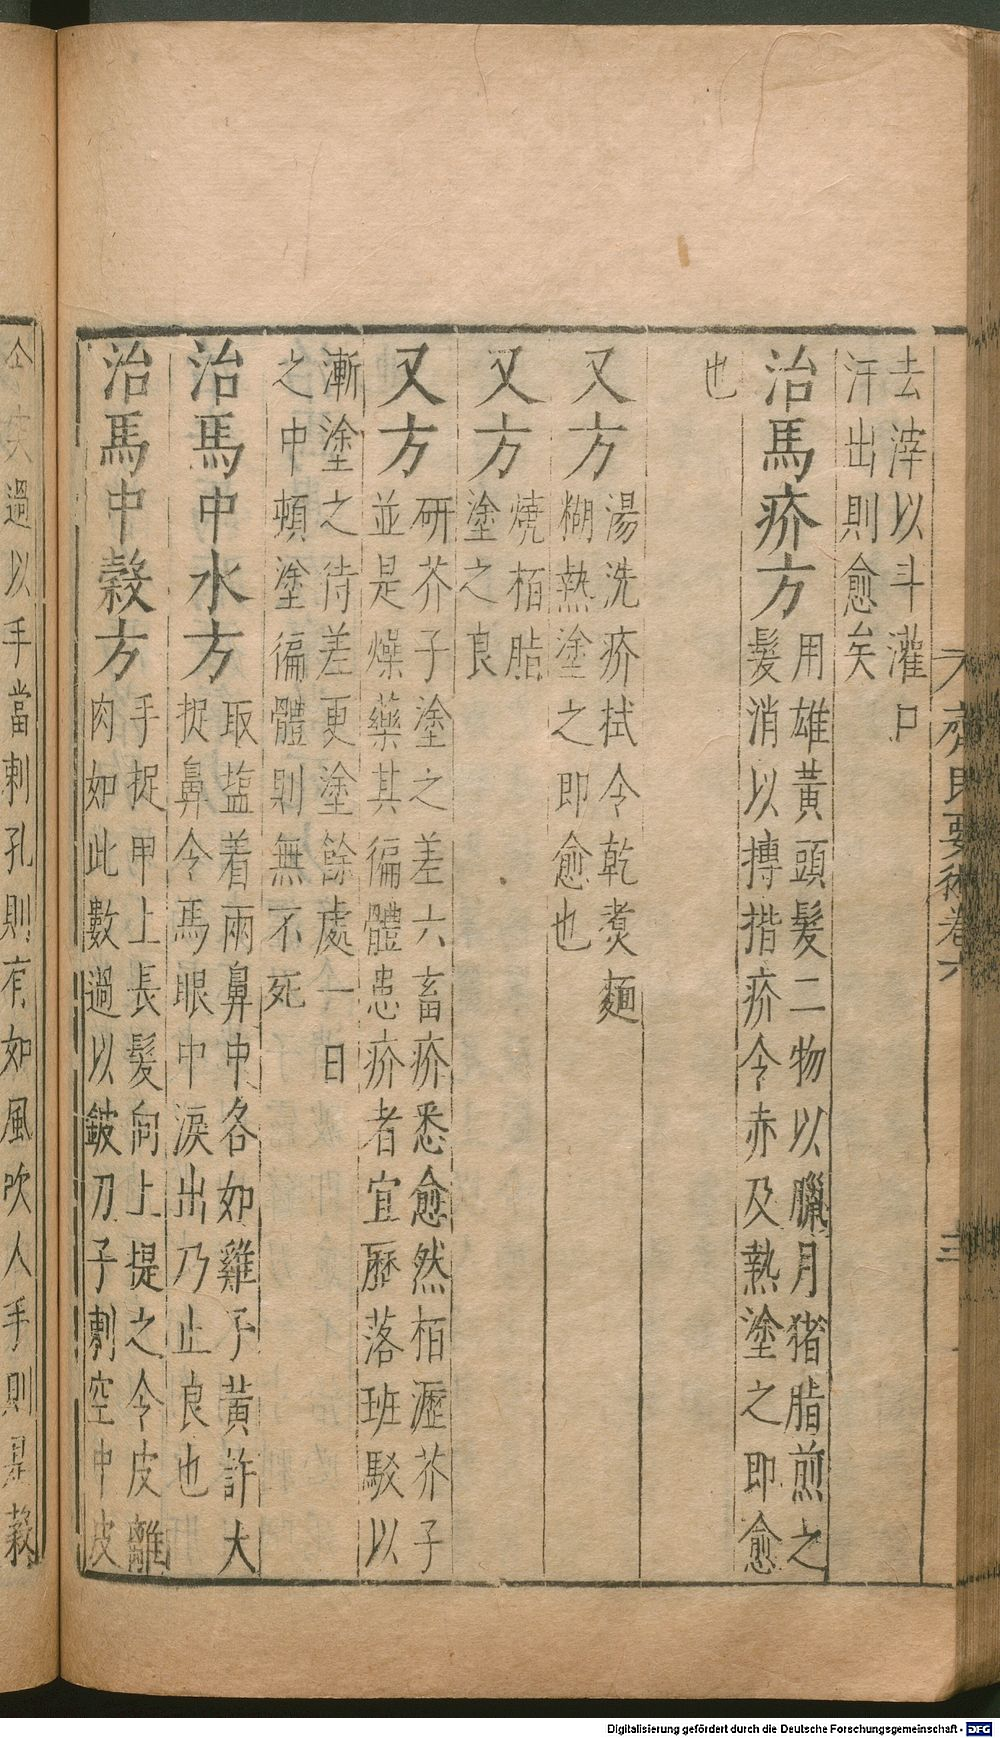 去滓以斗灌口
汗出則愈矣
治馬疥方
用雄黃頭髮二物以臘月猪脂煎之
髮消以摶揩疥令赤及熱塗之即愈
也
又方
湯洗疥拭令乾煑麵
糊熱塗之即愈也
又方
燒栢脂
塗之良
又方
研芥子塗之差六畜疥悉愈然栢瀝芥子
並是燥藥其徧體患疥者宜歷落班駁以
漸塗之待差更塗餘處一日
之中頓塗徧體則無不死
治馬中水方
取塩着兩鼻中各如雞子黃許大
捉鼻令馬眼中淚出乃止良也
治馬中糓方
手捉甲上長髮向上提之令皮離
肉如此數過以鈹刀子刺空中皮
突過以手當刺孔則有如風吹人手則是糓
齊民要術卷六
三
Digitalisierung gefördert durch die Deutsche Forschungsgemeinschaft - DFG